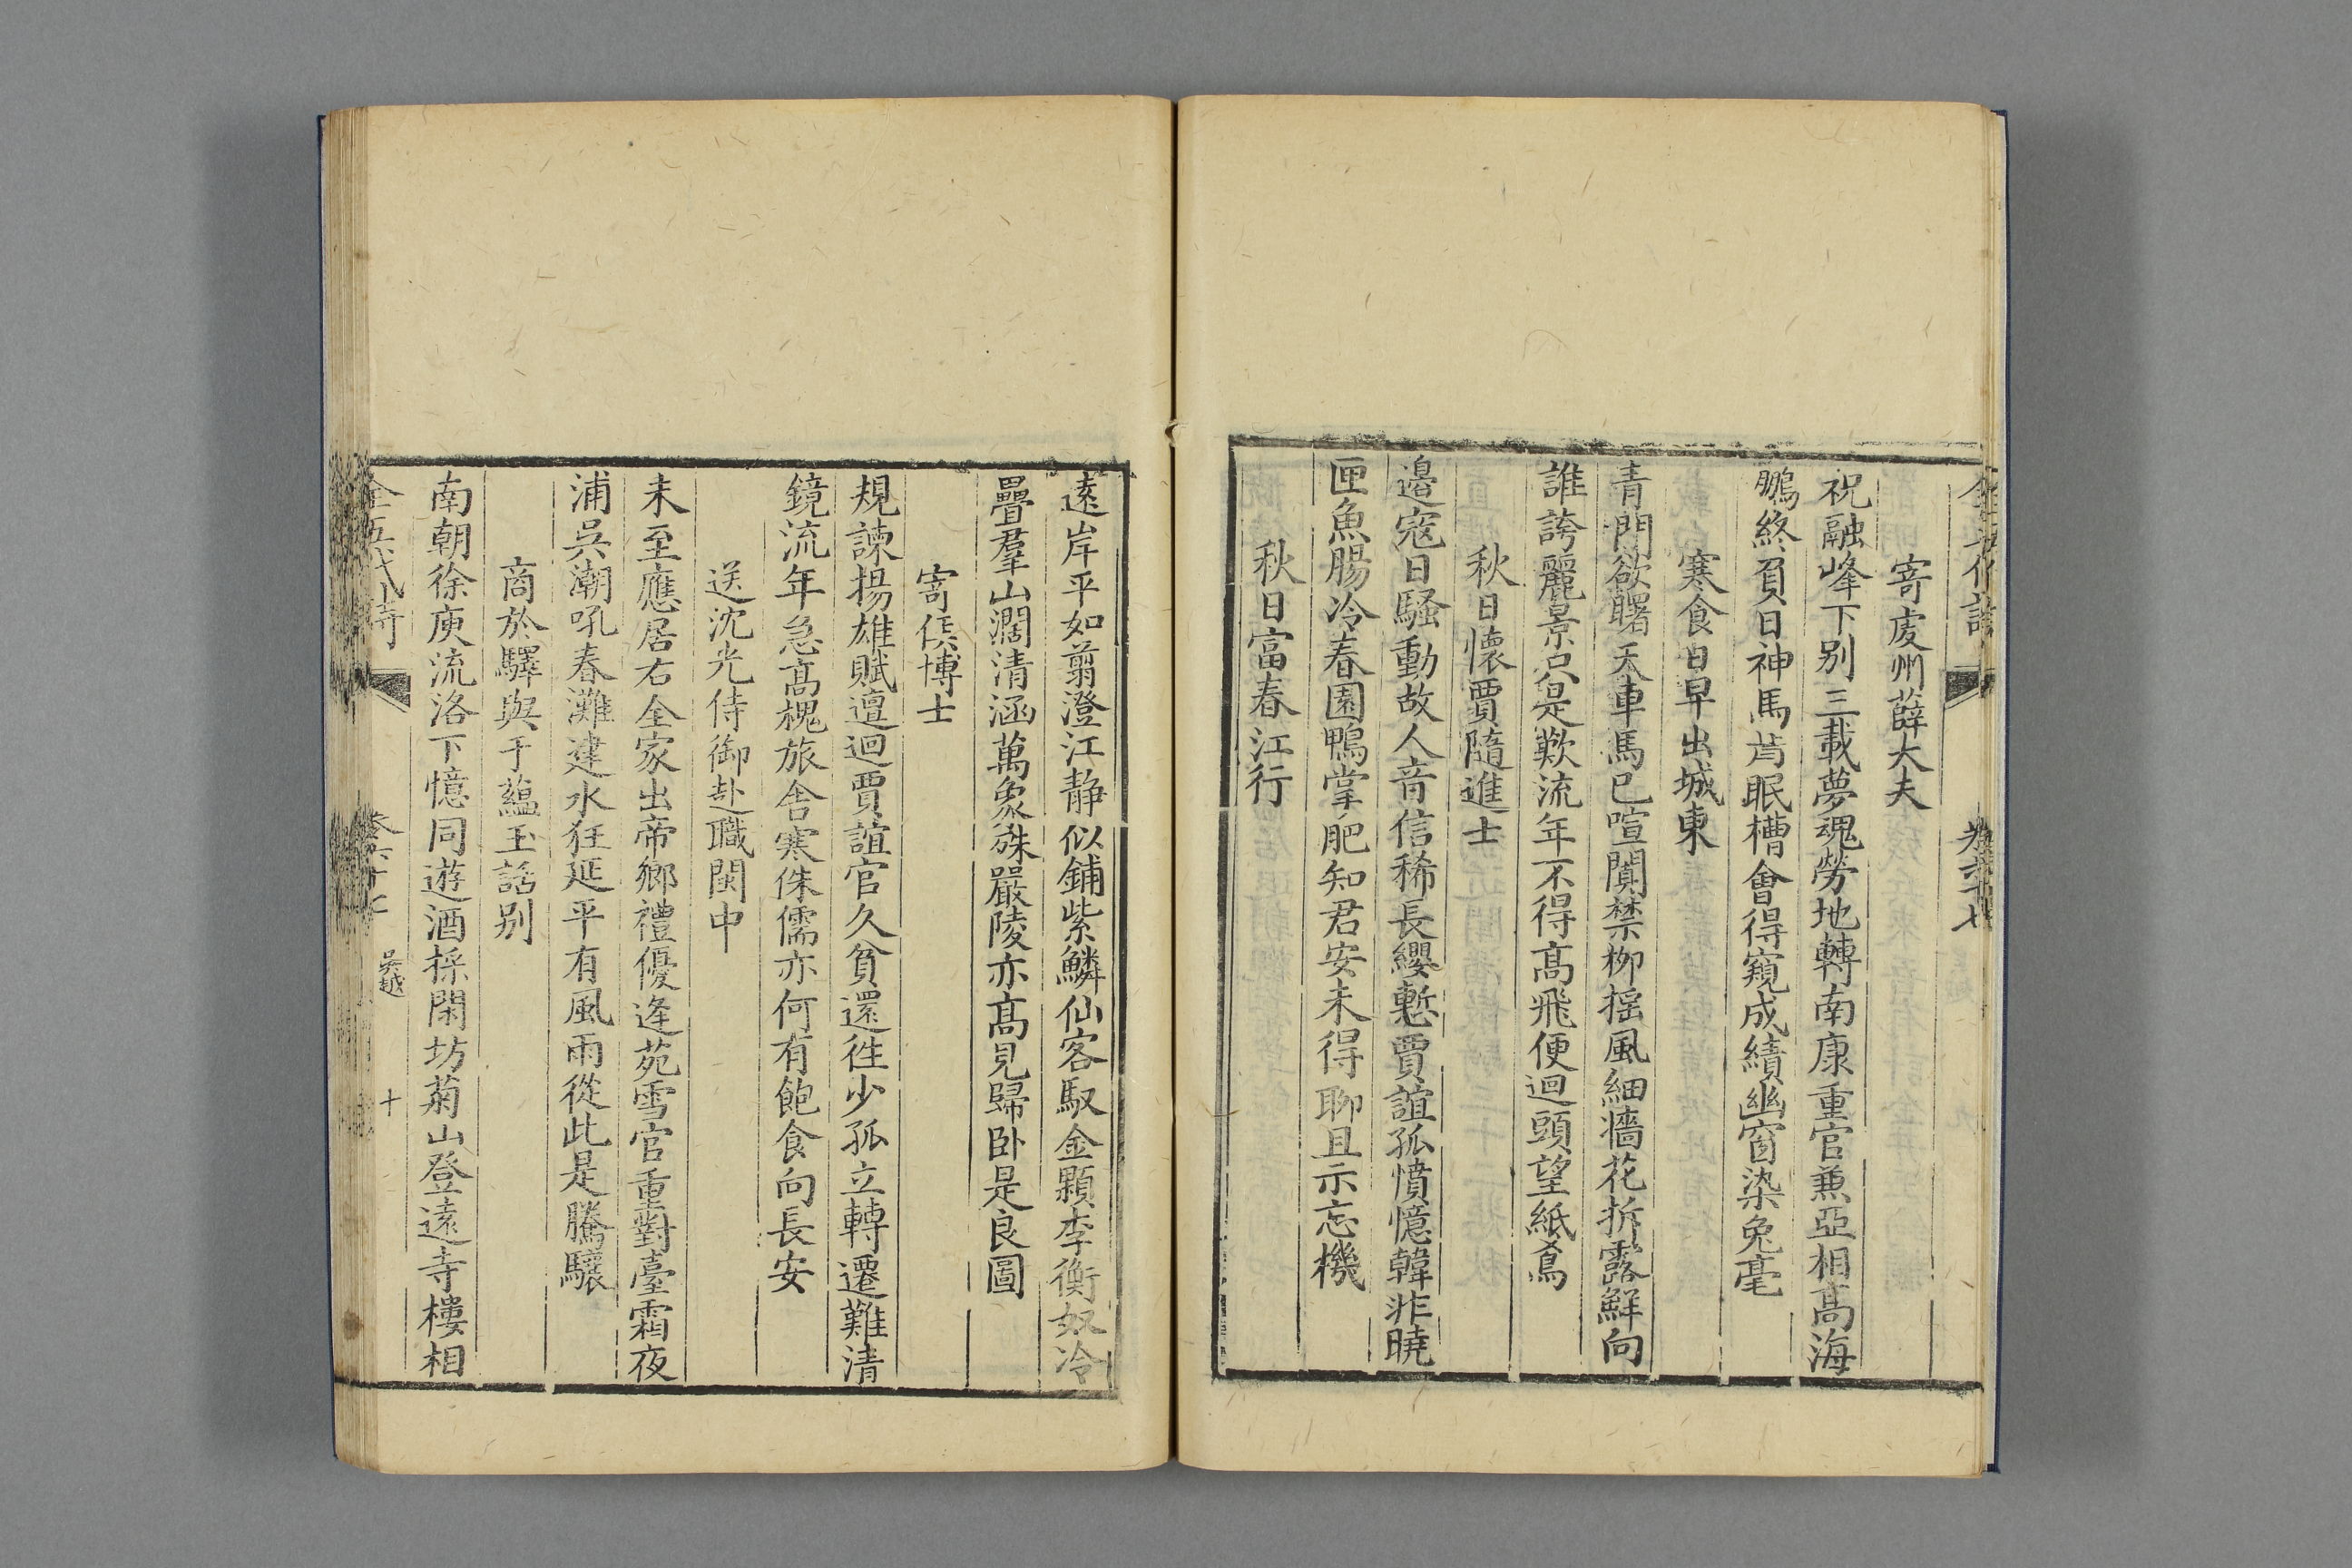 寄處州薛大夫
祝融峰下别三載夢魂勞地轉南康重官兼亞相髙海
鵬終負日神馬肯眠槽㑹得窺成績幽窗染兔毫
寒食日早出城東
青門欲曙天車馬已喧闐禁栁揺風細牆花折露鮮向
誰誇麗景只是歎流年不得髙飛便迴頭望紙鳶
秋日懷賈隨進士
邉寇日騷動故人音信稀長纓慙賈誼孤憤憶韓非曉
匣魚腸冷春園鴨掌肥知君安未得聊且示忘機
秋日富春江行
逺岸平如翦澄江静似鋪紫鱗仙客馭金顆李衡奴冷
疊羣山濶清涵萬象殊嚴陵亦髙見歸卧是良圖
寄侯博士
規諫揚雄賦邅迴賈誼官久貧還徃少孤立轉遷難清
鏡流年急髙槐旅舎寒侏儒亦何有飽食向長安
送沈光侍御赴職閩中
未至應居右全家出帝鄉禮優逢苑雪官重對臺霜夜
浦吳潮吼春灘建水狂延平有風雨從此是騰驤
商於驛與于蘊玉話别
南朝徐庾流洛下憶同遊酒採閑坊菊山登逺寺樓相
全五代詩
吳越
十